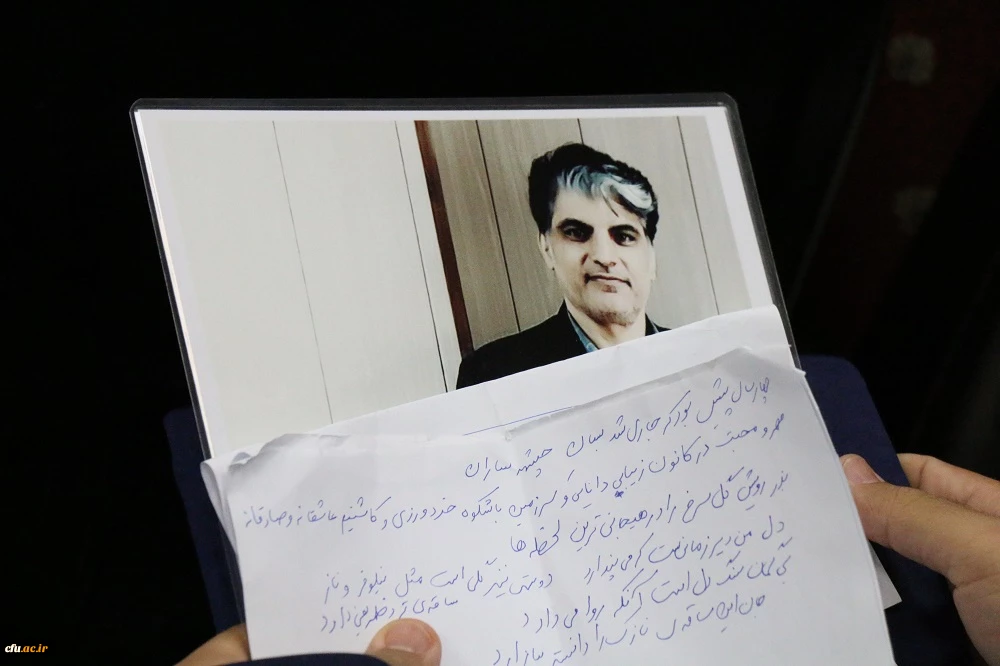 چهار سال پیش بود که جاری شد بسان چشمه ساران
مهر و محبت در کانون زیبایی و دانایی و سرزمین باشکوه خردورزی و کاشتیم عاشقانه و صادقانه
بذر رویش گل سرخ را در هیجانی ترین لحظه ها
دل من دیر زمانی است که می پندارد دوستی نیز گلی است مثل نیلوفر و ناز
ساقه ی ترد ظریفی دارد
بی گمان سنگ دل است آنکه روا می دارد
جان این ساقه ی نازک را دانسته بیازارد
cfu.ac.ir